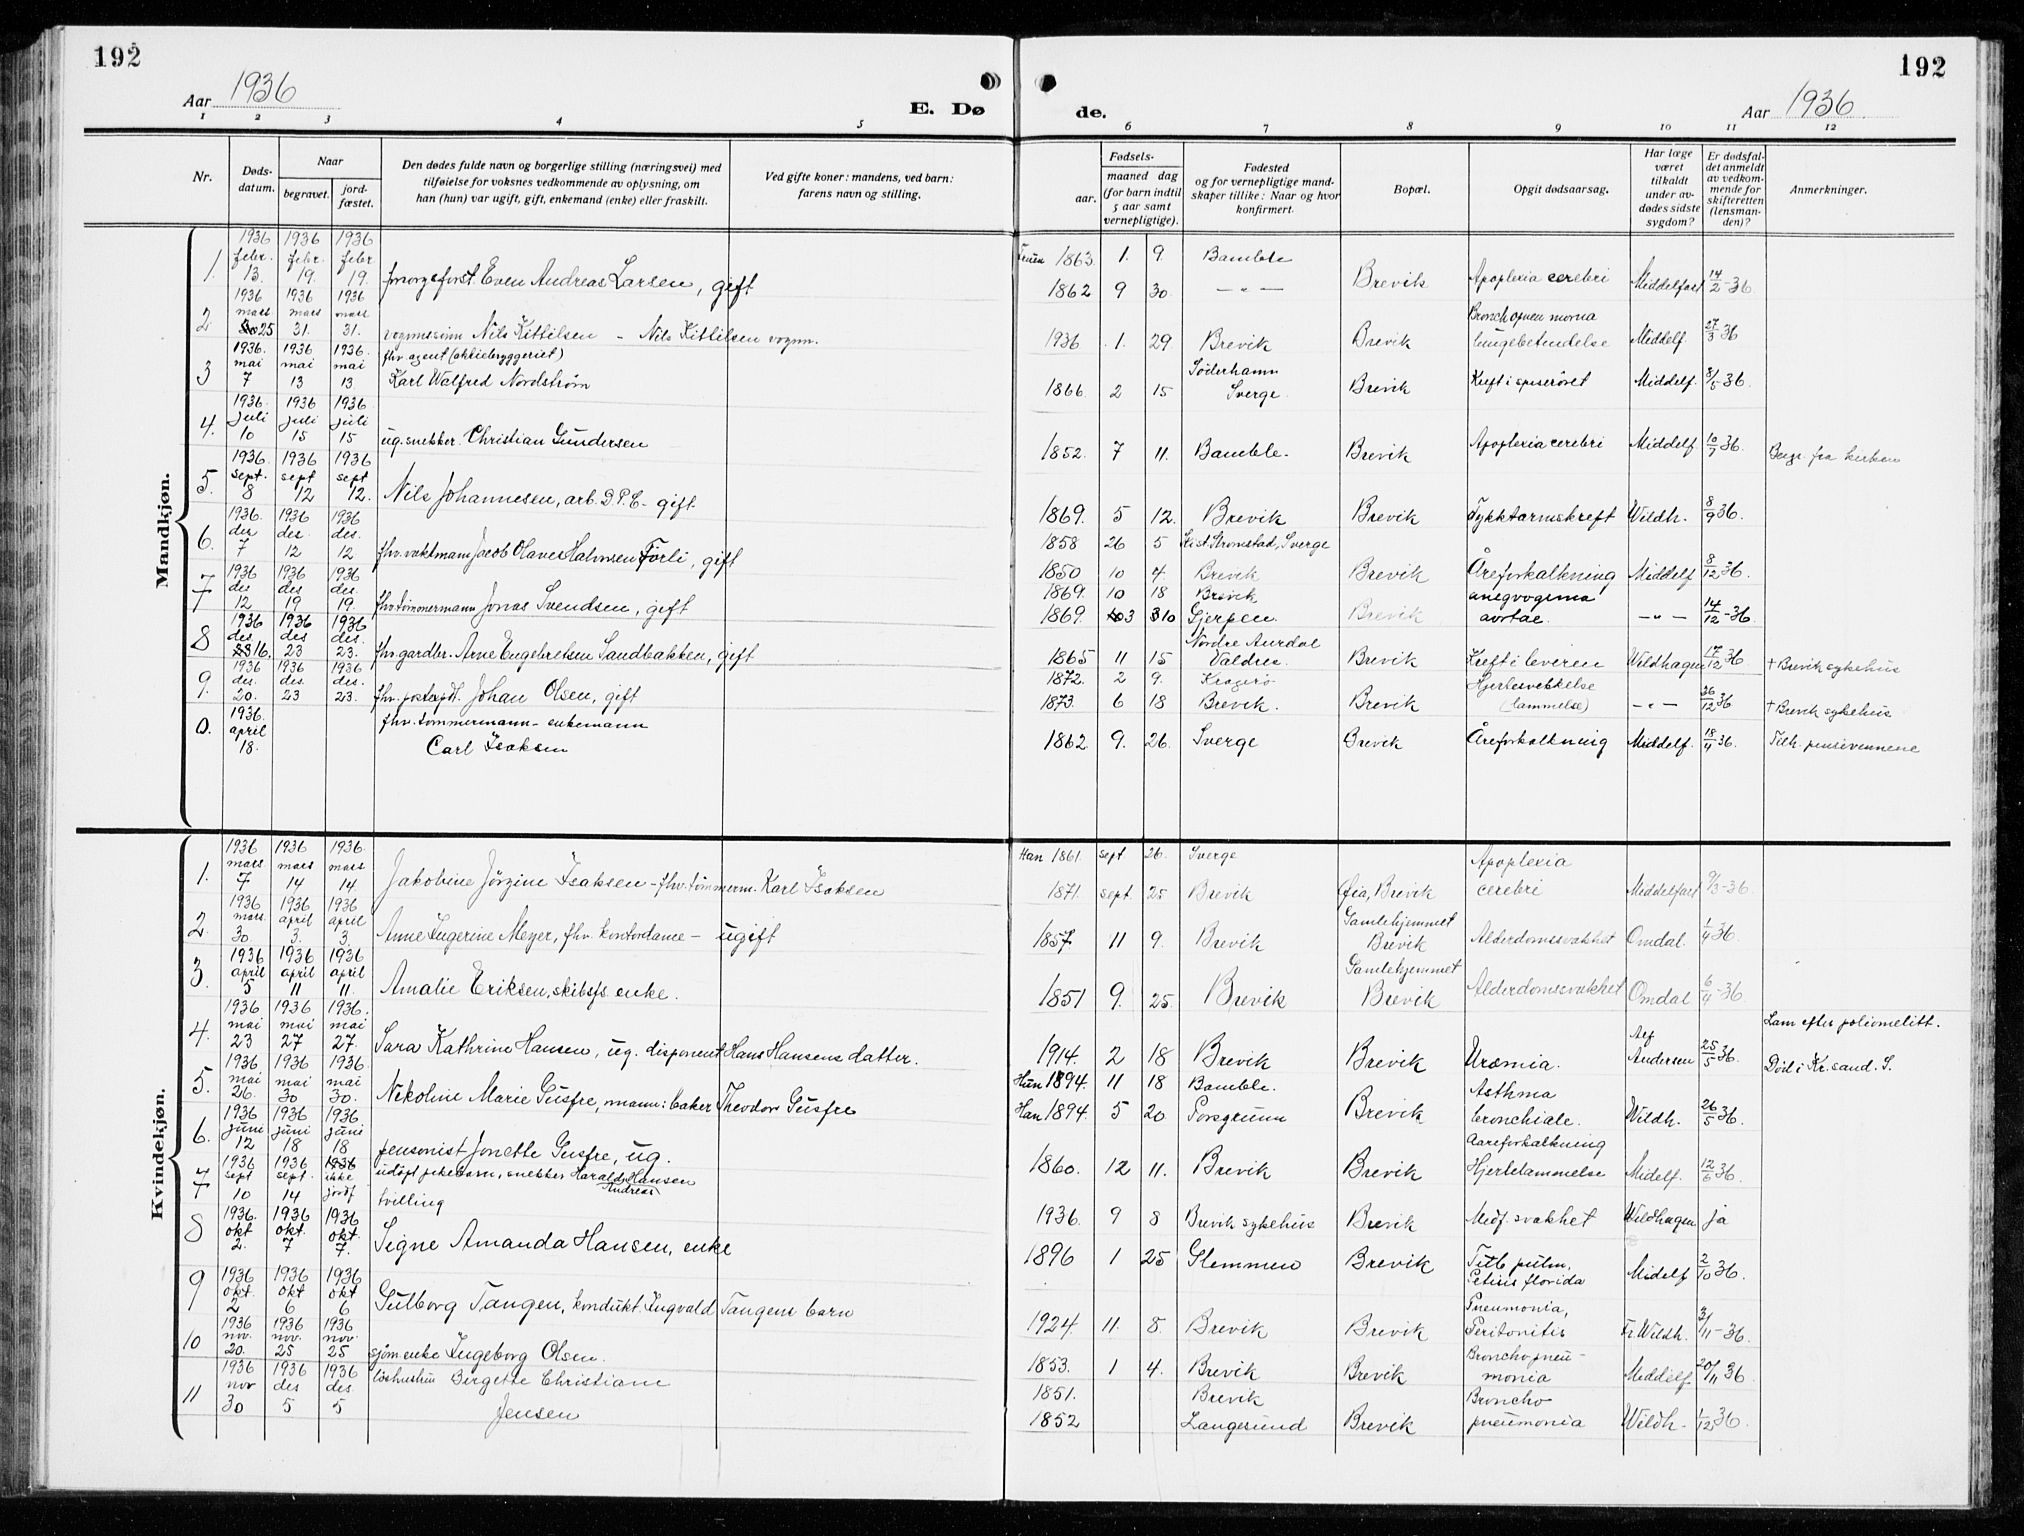 192
192
Aar 1936
E. Dø
de.
Aar 1936
1 2 3 4 5 6 7 8 9 10 11 12
Nr.
Døds-
datum.
Naar
begravet.
jord-
fæstet.
Den dødes fulde navn og borgerlige stilling (næringsvei) med
tilføielse for voksnes vedkommende av oplysning, om
han (hun) var ugift, gift, enkemand (enke) eller fraskilt.
Ved gifte koner: mandens, ved barn:
farens navn og stilling.
Fødsels-
aar.
maaned dag
(for barn indtil
5 aar samt
vernepligtige).
Fødested
og for vernepligtige mand-
skaper tillike: Naar og hvor
konfirmert.
Bopæl.
Opgit dødsaarsag.
Har læge
været
tilkaldt
under av-
dødes sidste
sygdom?
Er dødsfal-
det anmeldt
av vedkom-
mende for
skifteretten
(lensman-
den)?
Anmerkninger.
Mandkjøn.
1936 1936 1936
febr. febr. febr
1. 13. 19. 19. Even Andreas Larsen, gift
Fruen 1863. 1. 9. Bamble
1862 9 30. — " — Brevik Apoplexia cerebri Middelfart 14/2-36
1936 1936 1936
mars mars mars
2. 25 31. 31. vognmssønn Nils Kittilsen – Nils Kittilsen vognm.
1936 1. 29. Brevik Brevik Lungebetendelse Middelf. 27/3 36
1936. 1936 1936.
mai mai mai fhv. agent (aktiebryggeriet)
3 7 13 13 Karl Walfred Nordstrøm
Söderhamn
1866. 2 15 Sverge. Brevik Kreft i spiserøret Middelf. 8/5-36.
1936. 1936 1936.
juli juli juli
4. 10 15 15 ug. snekker. Christian Gundersen
1852. 7 11. Bamble. Brevik Apoplexia cerebri Middelf. 10/7 36. Begr. fra kirken
1936. 1936 1936
sept. sept sept
5. 8 12 12. Nils Johannesen, arb. D.P.C. gift
1869. 5 12. Brevik Brevik Tykktarmskreft Wildh. 8/9 36.
1936. 1936 1936
des des. des.
6. 7 12 12 fhv. vaktmann Jacob Olaves Halvorsen Førli, gift
1858 26 5 Strømstad, Sverge
1850 10 4. Brevik Brevik Åreforkalkning Middelf 8/12 36.
1936 1936 1936
des des des.
7 12 19 19. fhv. tømmermann Jonas Svendsen, gift
1869. 10 18 Brevik
1869. 3 10 Gjerpen. Brevik aortae. — " — 14/12-36.
1936 1936 1936
des. des des.
8 16. 23 23. fhv. gardbr. Arne Engebretsen Sandbakken, gift
Nordre Aurdal
1865 11 15 Valdres. Brevik Kreft i leveren Wildhagen 17/12 36. + Brevik sykehus
1936 1936 1936
des. des. des.
9. 20. 23 23. fhv. postexpdt. Johan Olsen, gift
1872. 2 9. Kragerø Hjertesvekkelse
1873. 6 18 Brevik. Brevik (lammelse) — " — 26/12 36 + Brevik sykehus
1936. fhv. tømmermann - enkemann
april
0. 18. Carl Isaksen
1862 9. 26. Sverge Brevik Åreforkalkning Middelf. 18/4 36. Tilh. pinsevennene
Kvindekjøn.
1936 1936 1936.
mars mars mars
1. 7 14 14. Jakobine Jörgine Isaksen – fhv. tömmerm. Karl Isaksen
Han 1861. sept 26. Sverge Apoplexia
1871. sept. 25 Brevik Øia, Brevik cerebri Middelfart 9/3-36.
1936 1936 1936
mars. april april
2. 30. 3. 3. Anne Ingerine Meyer, fhv. kontordame – ugift
Gamlehjemmet
1857. 11 9. Brevik Brevik Alderdomssvakhet Omdal. 1/4 36.
1936 1936 1936
april april april
3. 5 11 11. Amalie Eriksen, skibsfs. enke.
Gamlehjemmet
1851 9. 25. Brevik Brevik Alderdomssvakhet Omdal 6/4-36
1936 1936 1936.
mai mai mai
4. 23 27 27. Sara Kathrine Hansen, ug. disponent Hans Hansens datter.
Lam efter poliomelitt.
1914. 2 18 Brevik Brevik Uræmia. Andersen 25/5 36. Död i Kr.sand. S.
1936. 1936 1936.
mai mai mai
5. 26. 30 30. Nikoline Marie Gusfre, mann: baker Theodor Gusfre
Hun 1894. 11 18 Bamble. Asthma
Han 1894. 5 20 Porsgrunn Brevik bronchiale. Wildh. 26/5 36.
1936 1936 1936
juni juni juni
6. 12 18 18 pensonist Jonette Gusfre, ug.
Aareforkalkning
1860. 12 11. Brevik Brevik Hjertelammelse Midelf. 12/6 36.
1936 1936 1936
sept sept. ikke udöpt pikebarn, snekker Harald Andreas Hansen
7 10 14 jordf tvilling
1936. 9 8 Brevik sykehus Brevik Medf. svakhet Wildhagen ja
1936. 1936 1936
okt okt. okt.
8 2. 7 7. Signe Amanda Hansen, enke
1896 1 25 Glemmen Brevik florida Midelf 2/10 36.
1936 1936 1936
okt. okt okt
9 2 6 6 Gulborg Tangen, kondukt. Ingvald Tangens barn
Pneumonia,
1924. 11. 8. Brevik Brevik Peritonitis Fr. Wildh. 3/11-36.
1936 1936 1936
nov. nov. nov.
10 20. 25 25 sjöm.enke Ingeborg Olsen.
Bronchopneu-
1853. 1 4. Brevik Brevik monia Middelf. 20/11 36
1936 1936 1936
nov des des. Birgette Christiane
11 30 5 5 Jensen
1851. Brevik Broncho
1852 Langesund Brevik pneumonia Wildh. 1/12 36.